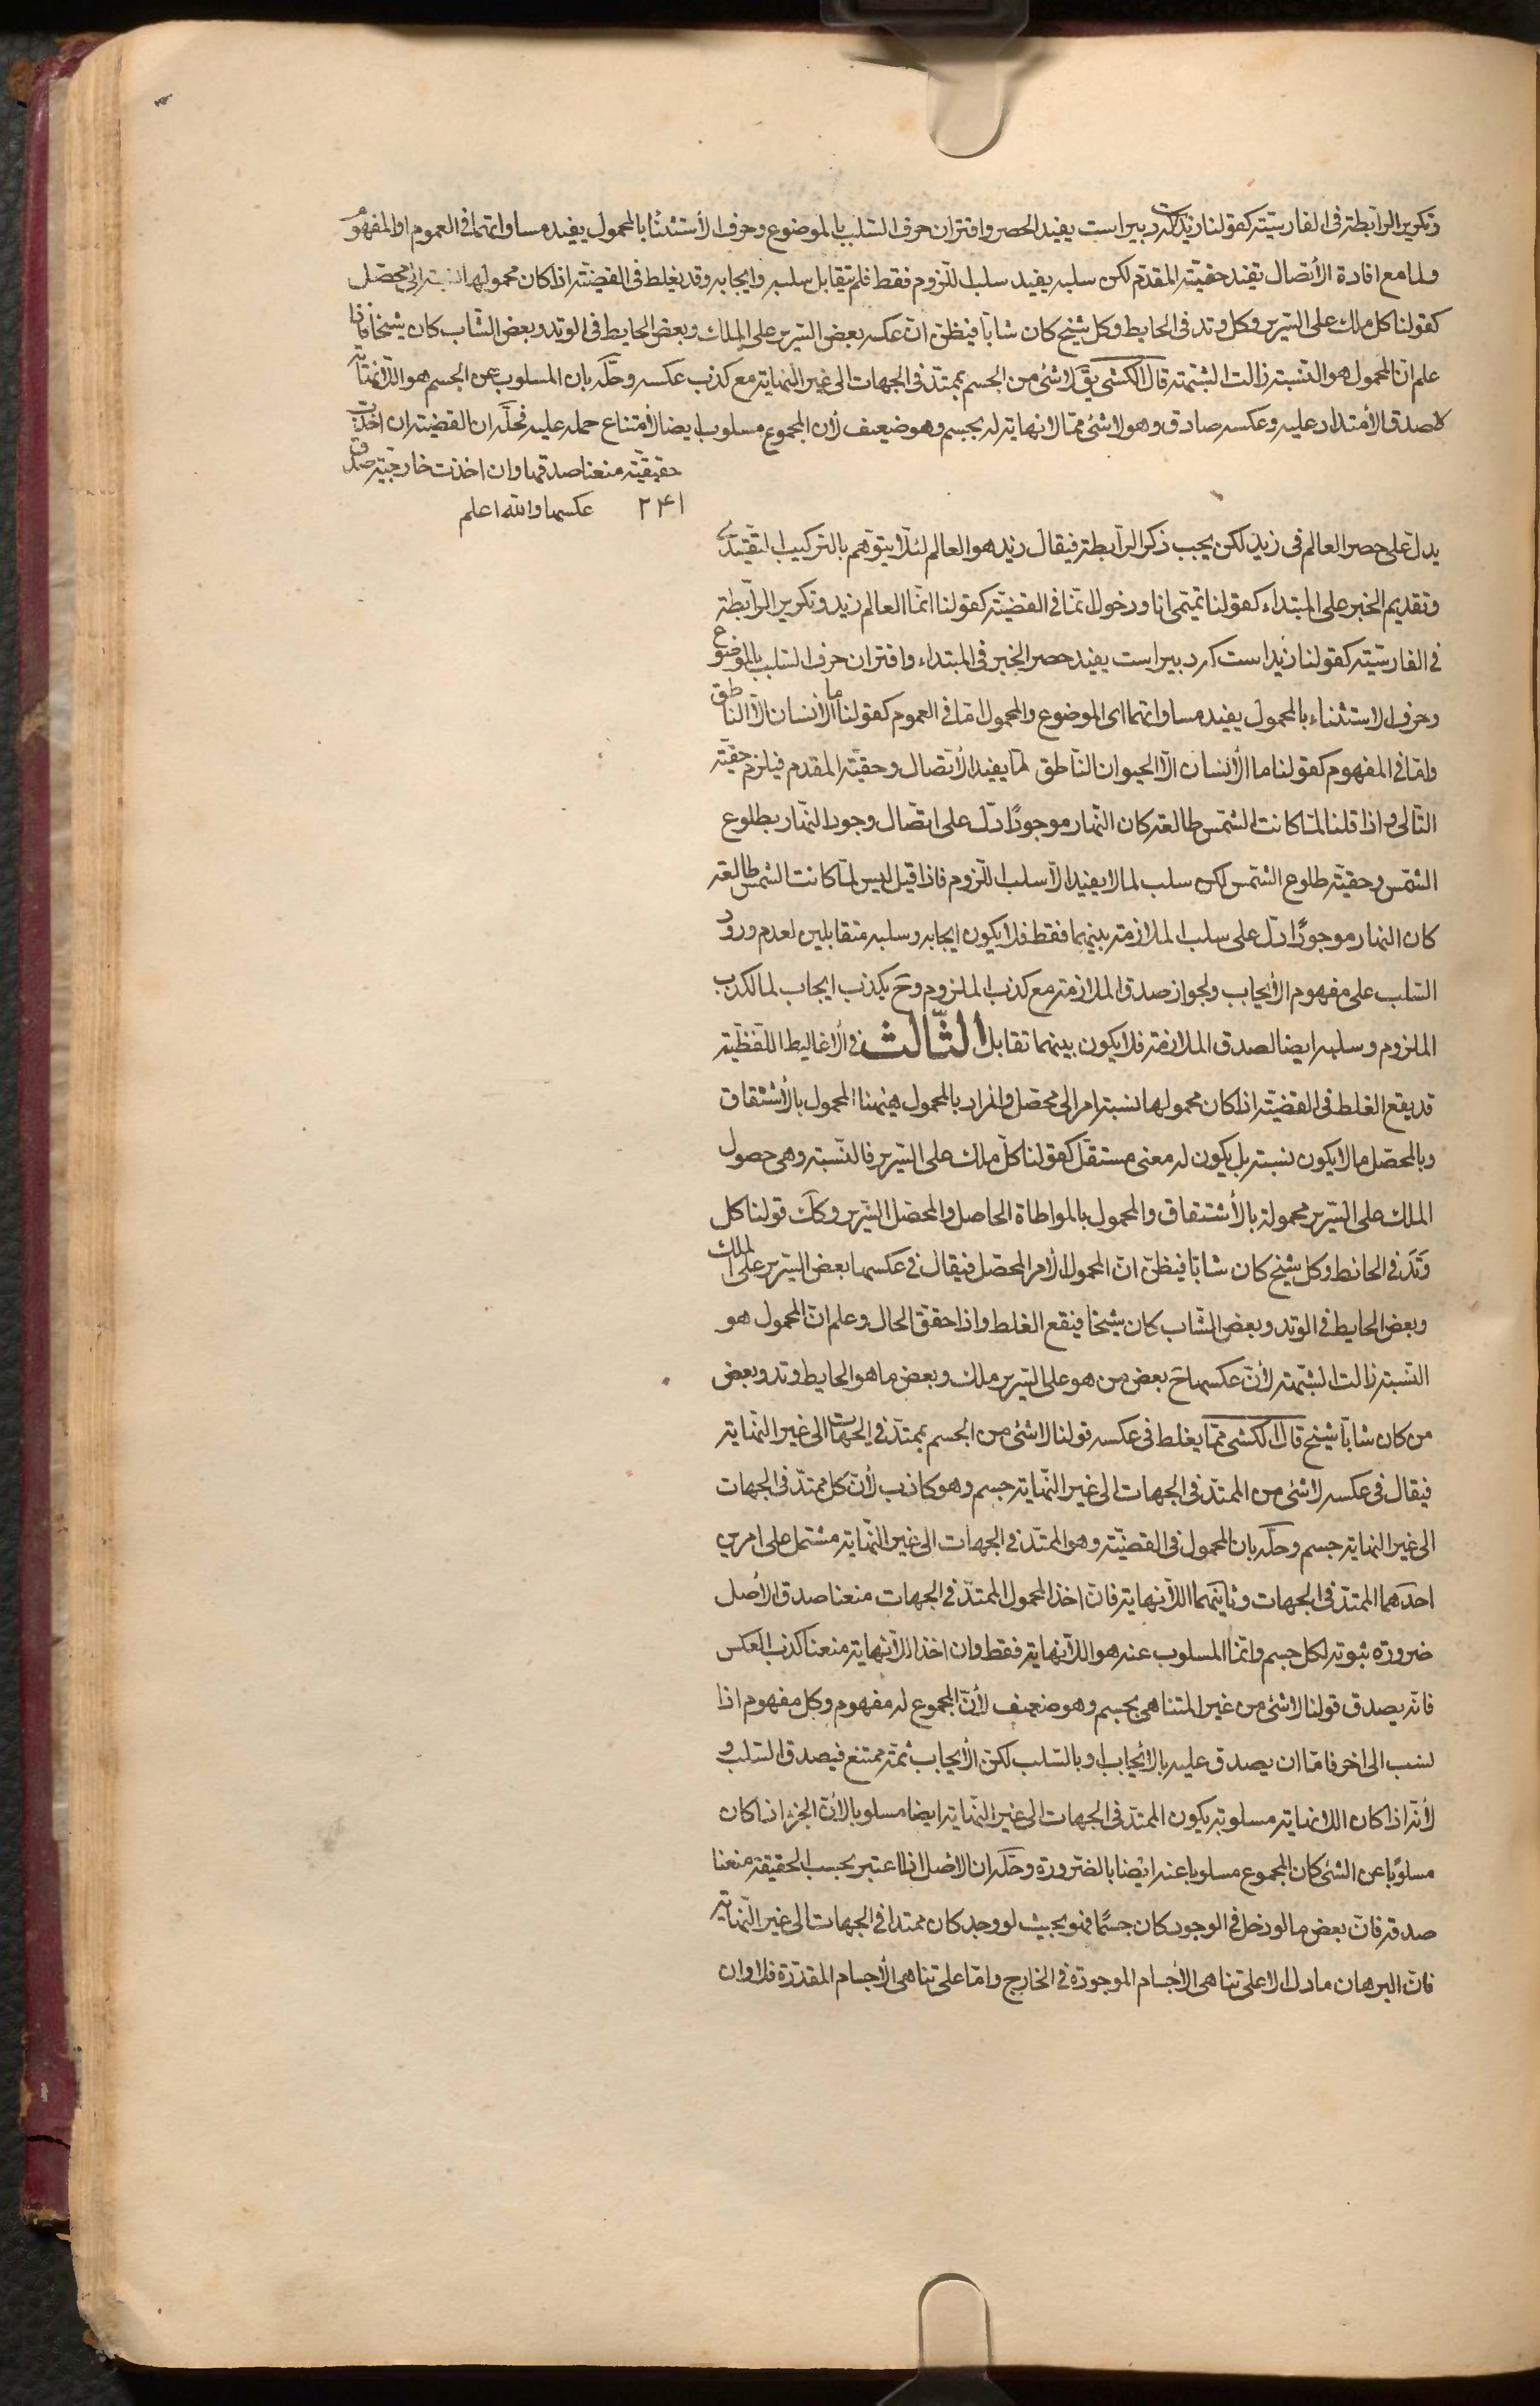 وتكرير الرابطة فى الفارسيّة كقولنا زيد است كه دبير است يفيد الحصر واقتران حرف السّلب بالموضوع وحرف الأستثنا بالمحمول يفيد مساواتهما فى العموم او المفهوم
ولما مع افادة الأتصال تفيد حقيّة المقدّم لكن سلبه يفيد سلب اللّزوم فقط فلم يتقابل سلبه وايجابه وقد يغلط فى القضيّة اذا كان محمولها النسبة الى محصّل
كقولنا كل ملك على السّرير وكل وتد فى الحايط وكل شيخ كان شابّا فيظنّ انّ عكسه بعض السّرير على الملك وبعض الحايط فى الوتد وبعض الشّاب كان شيخا فاذا
علم انّ المحمول هو النّسبة زالت الشّبهة قال الكشى يقَ لا شئ من الجسم بممتدّ فى الجهات الى غير النهاية مع كذب عكسه وحلّه بان المسلوب عن الجسم هو اللانهاية
لا صدق الأمتداد عليه وعكسه صادق وهو لا شئ ممّا لا نهاية له بجسم وهو ضعيف لأن المجموع مسلوب ايضا لأمتناع حمله عليه فحلّه ان القضيّة ان اخذت
حقيقيّة منعنا صدقها وان اخذت خارجيّة صدق
عكسها والله اعلم ٢٤١
يدلّ على حصر العالم فى زيد لكن يجب ذكر الرّابطة فيقال زيد هو العالم لئلّا يتوهّم بالتركيب التقييدى
وتقديم الخبر على المبتداء كقولنا تميمى انا ودخول انّما فى القضيّة كقولنا انّما العالم زيد وتكرير الرّابطة
فى الفارسيّة كقولنا زيد است كه دبير است يفيد حصر الخبر فى المبتداء واقتران حرف السّلب بالموضوع
وحرف الاستثناء بالمحمول يفيد مساواتهما اى الموضوع والمحمول امّا فى العموم كقولنا ما الأنسان الّا النّاطق
وامّا فى المفهوم كقولنا ما الأنسان الّا الحيوان النّاطق لمّا يفيد الأتّصال وحقيّة المقدم فيلزم حقيّة
التّالى واذا قلنا لمّا كانت الشّمس طالعة كان النّهار موجودًا دلّ على اتّصال وجود النّهار بطلوع
الشّمس وحقيّة طلوع الشّمس لكن سلب لما لا يفيد الّا سلب اللّزوم فاذا قيل ليس لمّا كانت الشمس طالعة
كان النهار موجودًا دلّ على سلب الملازمة بينهما فقط فلا يكون ايجابه وسلبه متقابلين لعدم ورود
السّلب على مفهوم الأيجاب ولجواز صدق الملازمة مع كذب الملزوم وحَ يكذب ايجاب لما لكذب
الملزوم وسلبه ايضا لصدق الملازمة فلا يكون بينهما تقابل الثّالث فى الأغاليط اللّفظيّة
قد يقع الغلط فى القضيّة اذا كان محمولها نسبة امر الى محصّل والمراد بالمحمول هيهنا المحمول بالأشتقاق
وبالمحصّل ما لا يكون نسبة بل يكون له معنى مستقلّ كقولنا كلّ ملك على السّرير فالنّسبة وهى حصول
الملك على السّرير محمولة بالأشتقاق والمحمول بالمواطاة الحاصل والمحصّل السّرير وكذلك قولنا كل
وتد فى الحائط وكل شيخ كان شابّا فيظنّ انّ المحمول الأمر المحصّل فيقال فى عكسها بعض السّرير على الملك
وبعض الحايط فى الوتد وبعض الشّاب كان شيخا فيقع الغلط واذا حقّق الحال وعلم انّ المحمول هو
النّسبة زالت الشّبهة لأنّ عكسها حَ بعض من هو على السّرير ملك وبعض ما هو الحايط وتد وبعض
من كان شابّا شيخ قال الكشى ممّا يغلط فى عكسه قولنا لا شئ من الجسم بممتدّ فى الجهات الى غير النّهاية
فيقال فى عكسه لا شئ من الممتدّ فى الجهات الى غير النّهاية جسم وهو كاذب لأنّ كل ممتدّ فى الجهات
الى غير النهاية جسم وحلّه بان المحمول فى القضيّة وهو الممتدّ فى الجهات الى غير النّهاية مشتمل على امرين
احدهما الممتدّ فى الجهات وثانيهما اللّانهاية فان اخذ المحمول الممتدّ فى الجهات منعنا صدق الأصل
ضرورة ثبوته لكل جسم وانّما المسلوب عنه هو اللّانهاية فقط وان اخذ اللّانهاية منعنا كذب العكس
فانّه يصدق قولنا لا شئ من غير المتناهى بجسم وهو ضعيف لأنّ المجموع له مفهوم وكل مفهوم اذا
نسب الى اخر فامّا ان يصدق عليه بالأيجاب او بالسّلب لكن الأيجاب ثمّة ممتنع فيصدق السّلب و
لأنّه اذا كان اللانهاية مسلوبة يكون الممتدّ فى الجهات الى غير النّهاية ايضا مسلوبا لأنّ الجزء اذا كان
مسلوبًا عن الشئ كان المجموع مسلوبا عنه ايضا بالضّرورة وحلّه ان الاصل اذا اعتبر بحسب الحقيقة منعنا
صدقه فانّ بعض ما لو دخل فى الوجود كان جسمًا فهو بحيث لو وجد كان ممتدا فى الجهات الى غير النّهاية
فانّ البرهان ما دلّ الا على تناهى الأجسام الموجودة فى الخارج وامّا على تناهى الأجسام المقدّرة فلا وان